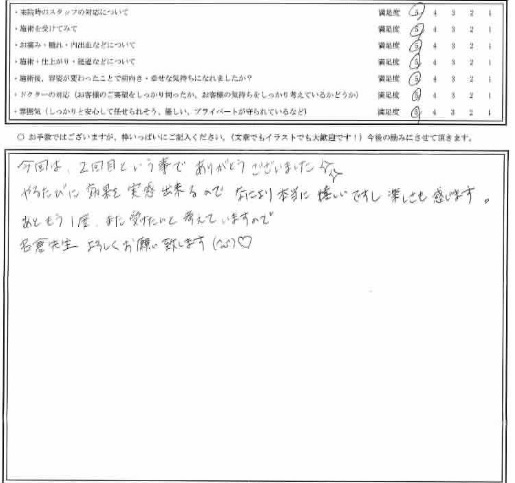 ・来院時のスタッフの対応について 満足度 5 4 3 2 1
・施術を受けてみて 満足度 5 4 3 2 1
・お痛み・腫れ・内出血などについて 満足度 5 4 3 2 1
・施術・仕上がり・経過などについて 満足度 5 4 3 2 1
・施術後、容姿が変わったことで前向き・幸せな気持ちになれましたか? 満足度 5 4 3 2 1
・ドクターの対応(お客様のご要望をしっかり伺ったか、お客様の気持ちをしっかり考えているかどうか) 満足度 5 4 3 2 1
・雰囲気(しっかりと安心して任せられそう、優しい、プライベートが守られているなど) 満足度 5 4 3 2 1
○ お手数ではございますが、枠いっぱいにご記入ください。(文章でもイラストでも大歓迎です!)今後の励みにさせて頂きます。
今回は、2回目という事で ありがとうございました☆☆
やるたびに 効果を 実感出来るので なにより本当に 嬉しいですし 楽しさも感じます。
あともう1度、また受けたいと 考えていますので
名倉先生 よろしくお願い致します(^^)♡